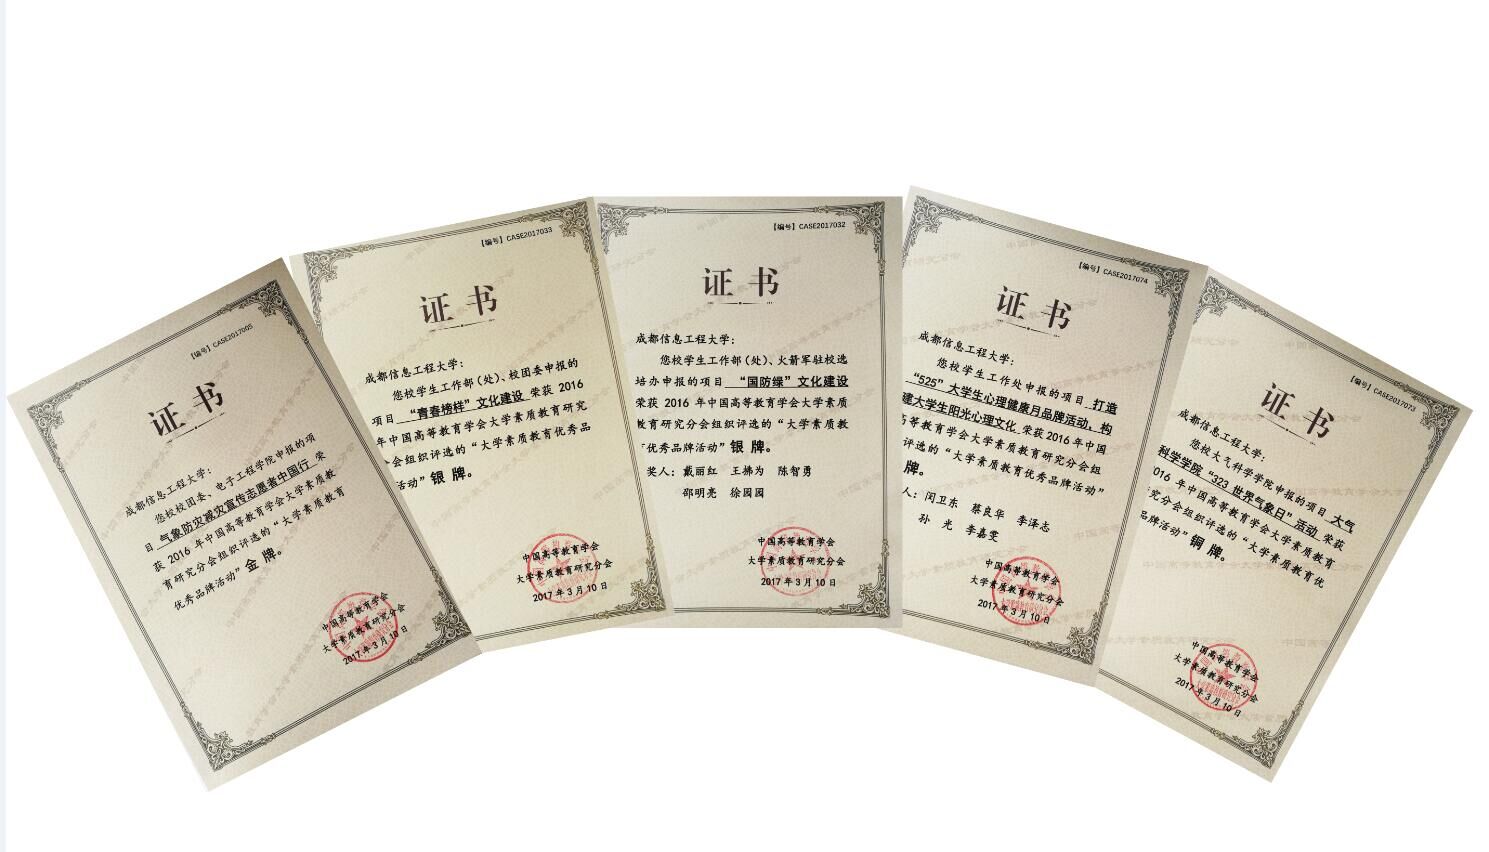 【编号】CASE2017005
证书
成都信息工程大学：
您校校团委、电子工程学院申报的项
目 气象防灾减灾宣传志愿者中国行 荣
获 2016 年中国高等教育学会大学素质教
育研究分会组织评选的“大学素质教育
优秀品牌活动”金 牌。
中国高等教育学会
大学素质教育研究分会
2017 年 3 月 10 日
【编号】CASE2017033
证书
成都信息工程大学：
您校学生工作部（处）、校团委申报的
项目 “青春榜样”文化建设 荣获 2016
年中国高等教育学会大学素质教育研究
会组织评选的“大学素质教育优秀品
活动”银 牌。
中国高等教育学会
大学素质教育研究分会
2017 年 3 月 10 日
【编号】CASE2017032
证书
成都信息工程大学：
您校学生工作部（处）、火箭军驻校选
培办申报的项目 “国防绿”文化建设
荣获 2016 年中国高等教育学会大学素质
教育研究分会组织评选的“大学素质教
优秀品牌活动”银 牌。
奖人：戴丽红 王拂为 陈智勇
邵明亮 徐园园
中国高等教育学会
大学素质教育研究分会
2017 年 3 月 10 日
【编号】CASE2017074
证书
成都信息工程大学：
您校学生工作处申报的项目 打造
“525”大学生心理健康月品牌活动，构
建大学生阳光心理文化 荣获 2016 年中国
高等教育学会大学素质教育研究分会组
评选的“大学素质教育优秀品牌活动”
牌。
人：闵卫东 蔡良华 李泽志
孙 光 李嘉雯
中国高等教育学会
大学素质教育研究分会
2017 年 3 月 10 日
【编号】CASE2017073
证书
成都信息工程大学：
您校大气科学学院申报的项目 大气
科学学院“323 世界气象日”活动 荣获
2016 年中国高等教育学会大学素质教育
研究分会组织评选的“大学素质教育优
品牌活动”铜 牌。
中国高等教育学会
大学素质教育研究分会
2017 年 3 月 10 日